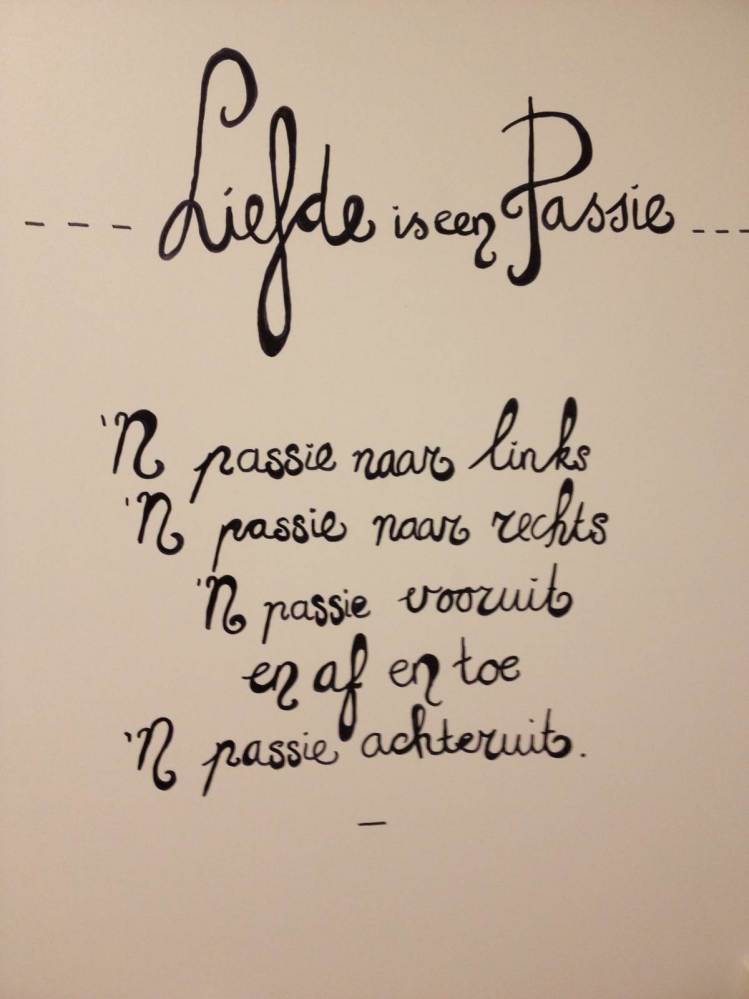 --- Liefde is een Passie ---
'N passie naar links
'N passie naar rechts
'N passie vooruit
en af en toe
'N passie achteruit.
–